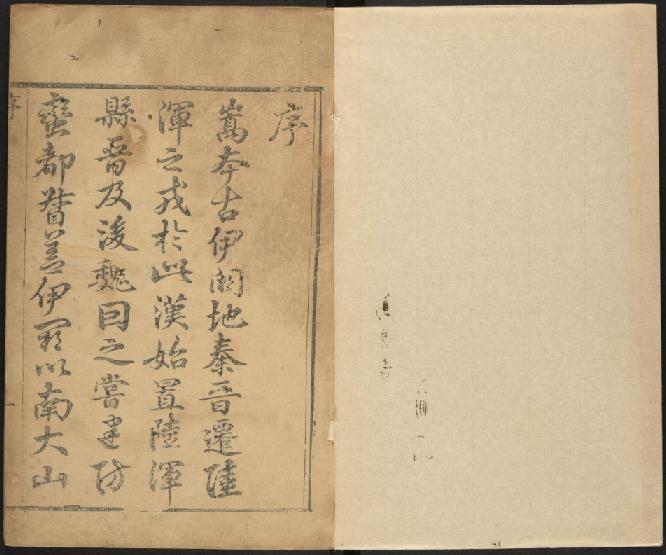 序
嵩本古伊闕地秦晉遷陸
渾之戎於此漢始置陸渾
縣晉及後魏因之嘗建防
蠻都督蓋伊闕以南大山
序